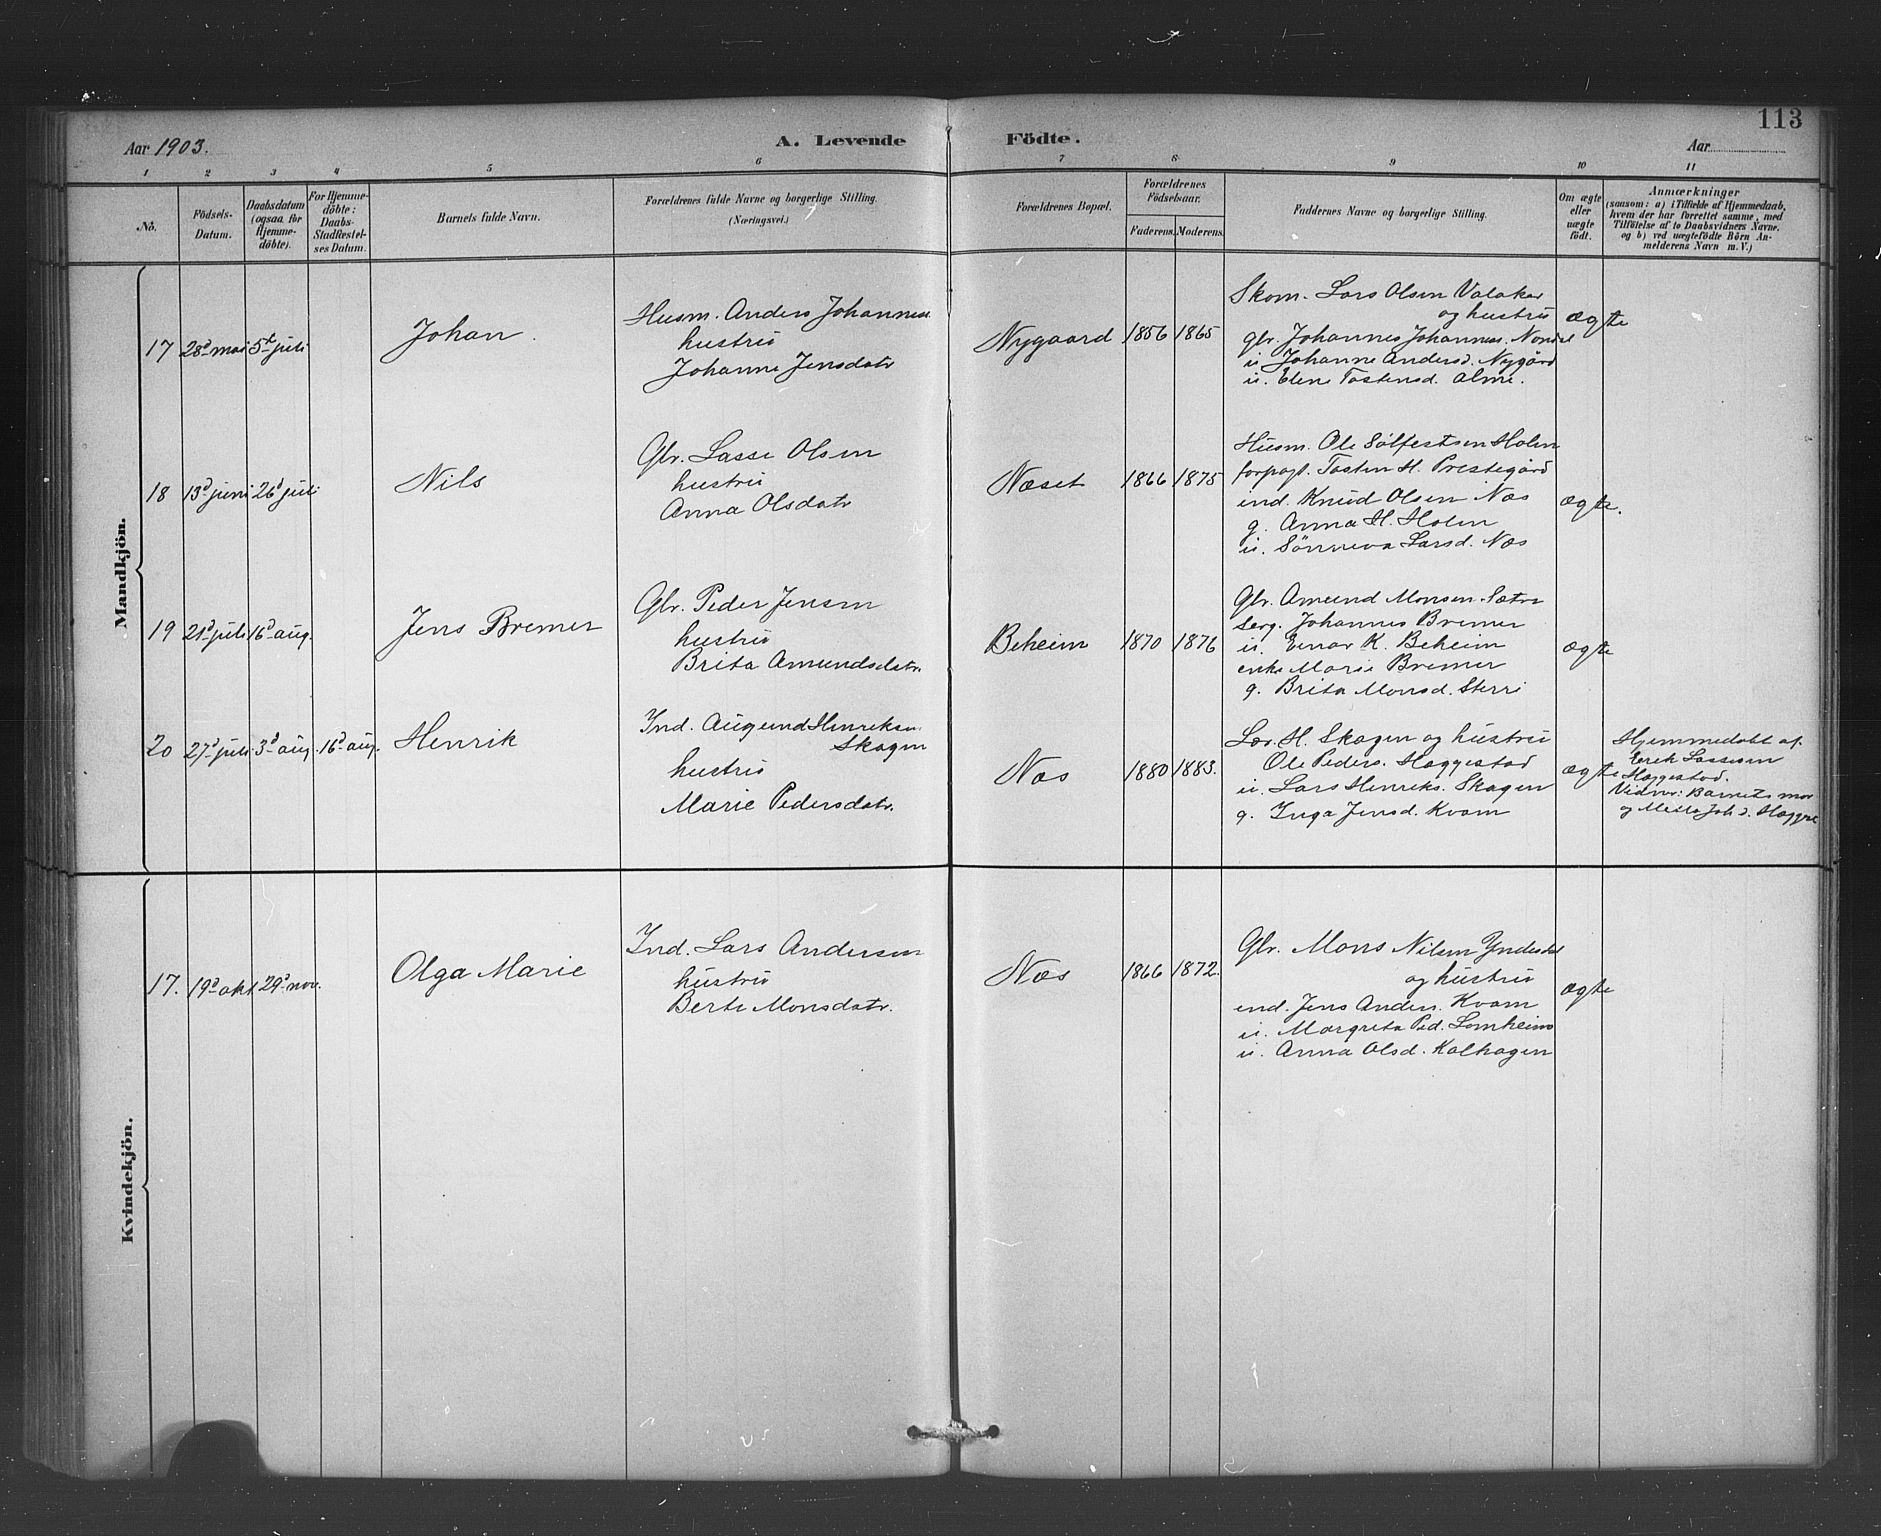 113
Aar 1903.
A. Levende Födte.
Aar
1 2 3 4 5 6 7 8 9 10 11
No.
Födsels-
Datum.
Daabsdatum
(ogsaa for
Hjemme-
döbte).
For Hjemme-
döbte:
Daabs
Stadfæstel-
ses Datum.
Barnets fulde Navn.
Forældrenes fulde Navne og borgerlige Stilling.
(Næringsvei.)
Forældrenes Bopæl.
Forældrenes
Födselsaar.
Faderens. Moderens.
Faddernes Navne og borgerlige Stilling.
Om ægte
eller
uægte
födt.
Anmærkninger
(saasom: a) i Tilfælde af Hjemmedaab,
hvem der har forrettet samme, med
Tilföielse af to Daabsvidners Navne,
og b) ved uægtefödte Börn An-
melderens Navn m. V.)
Mandkjön.
17 28d mai 5t juli
Johan.
Husm. Anders Johanness.
hustru
Johanne Jensdatr
Nygaard
1856 1865
Skom. Lars Olsen Valaker
og hustru
gbr. Johannes Johanness.
u. Johanne Andersd. Nygård
u. Elene Tostensd. Alme.
ægte
18 13d juni 26d juli
Nils
Gbr. Lasse Olsen
hustru
Anna Olsdatr
Næset
1866 1875
Husm. Ole Sølfestsen Holen
forpagt. Tosten H. Prestegård
ind. Knud Olsen Næs
g. Anna H. Holen
u. Sønneva Larsd. Næs
ægte.
19 21d juli 16d aug.
Jens Bremer
Gbr. Peder Jensen
hustru
Brita Amundsdatr.
Beheim
1870 1876
Gbr. Amund Monsen Sætre
Serg. Johannes Bremer
u. Einar K. Beheim
enke Marie Bremer
g. Brita Monsd. Sterri
ægte
20 27d juli 3d aug. 16d aug.
Henrik
Ind. Augund Henriksen
Skagen
hustru
Marie Pedersdatr.
Næs
1880 1883.
Lær. H. Skagen og hustru
Ole Peders. Haggestad
u. Lars Henriks. Skagen
g. Inga Jensd. Kvam
ægte
Hjemmedøbt af
Erik Lassesen
Haggestad.
Vidner: Barnets mor
og Mette Joh.d.
Kvindekjön.
17. 19d okt. 29d nov.
Olga Marie
Ind. Lars Andersen
hustru
Berte Monsdatr.
Næs
1866 1872.
Gbr. Mons Nilsen Yndesdal
og hustru
ind. Jens Anders. Kvam
u. Margreta Ped. Lomheim
u. Anna Olsd. Kalhagen
ægte